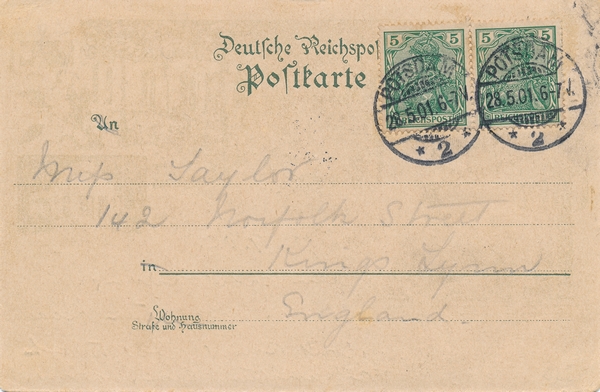 Deutsche Reichspos
Postkarte
5 5 5 5
REICHSPOST
POTSDAM
28.5.01.6-7.V.
* 2 *
POTSDAM
28.5.01.6-7.V.
* 2 *
An
Miss Taylor
142 Norfolk Street
in Kings Lynn
England.
Wohnung
Straße und Hausnummer